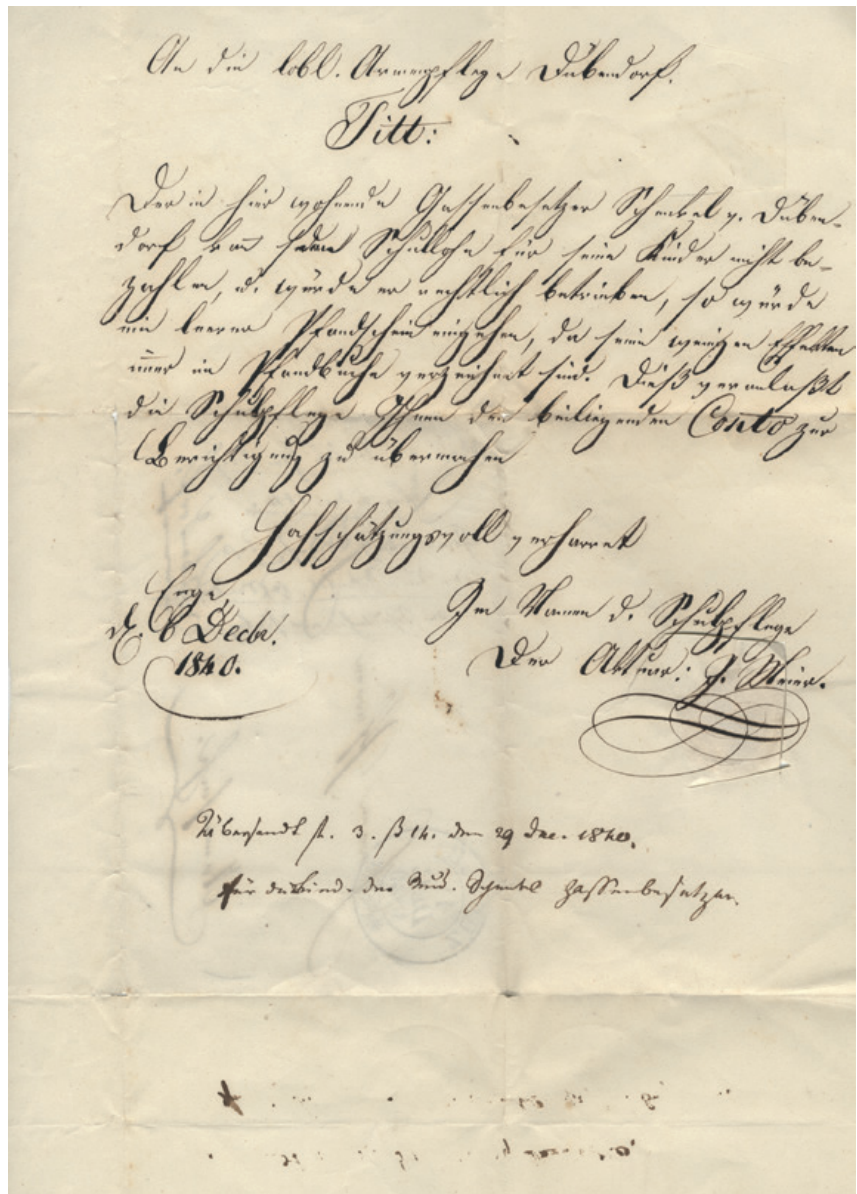 An die lobl. Armenpflege Dübendorf.
Titt:
Der in hier wohnende Gassenbesetzer Schenkel v. Düben-
dorf kann den Schullohn für seine Kinder nicht be-
zahlen, u. würde er rechtlich betrieben, so würde
ein leerer Pfandschein eingehen, da seine wenigen Effekten
immer im Pfandbuche verzeichnet sind. Dieß veranlaßt
die Schulpflege Ihnen den beiliegenden Conto zur
Berichtigung zu übermachen
Hochschätzungsvoll verharret
Enge,
d. 6 Decbr.
1840.
Im Namen d. Schulpflege
Der Aktuar: J. Meier.
Übersendt fl. 3. ß 14. den 29 Dec. 1840.
für die Kind. des Rud. Schenkel Gassenbesetzer.